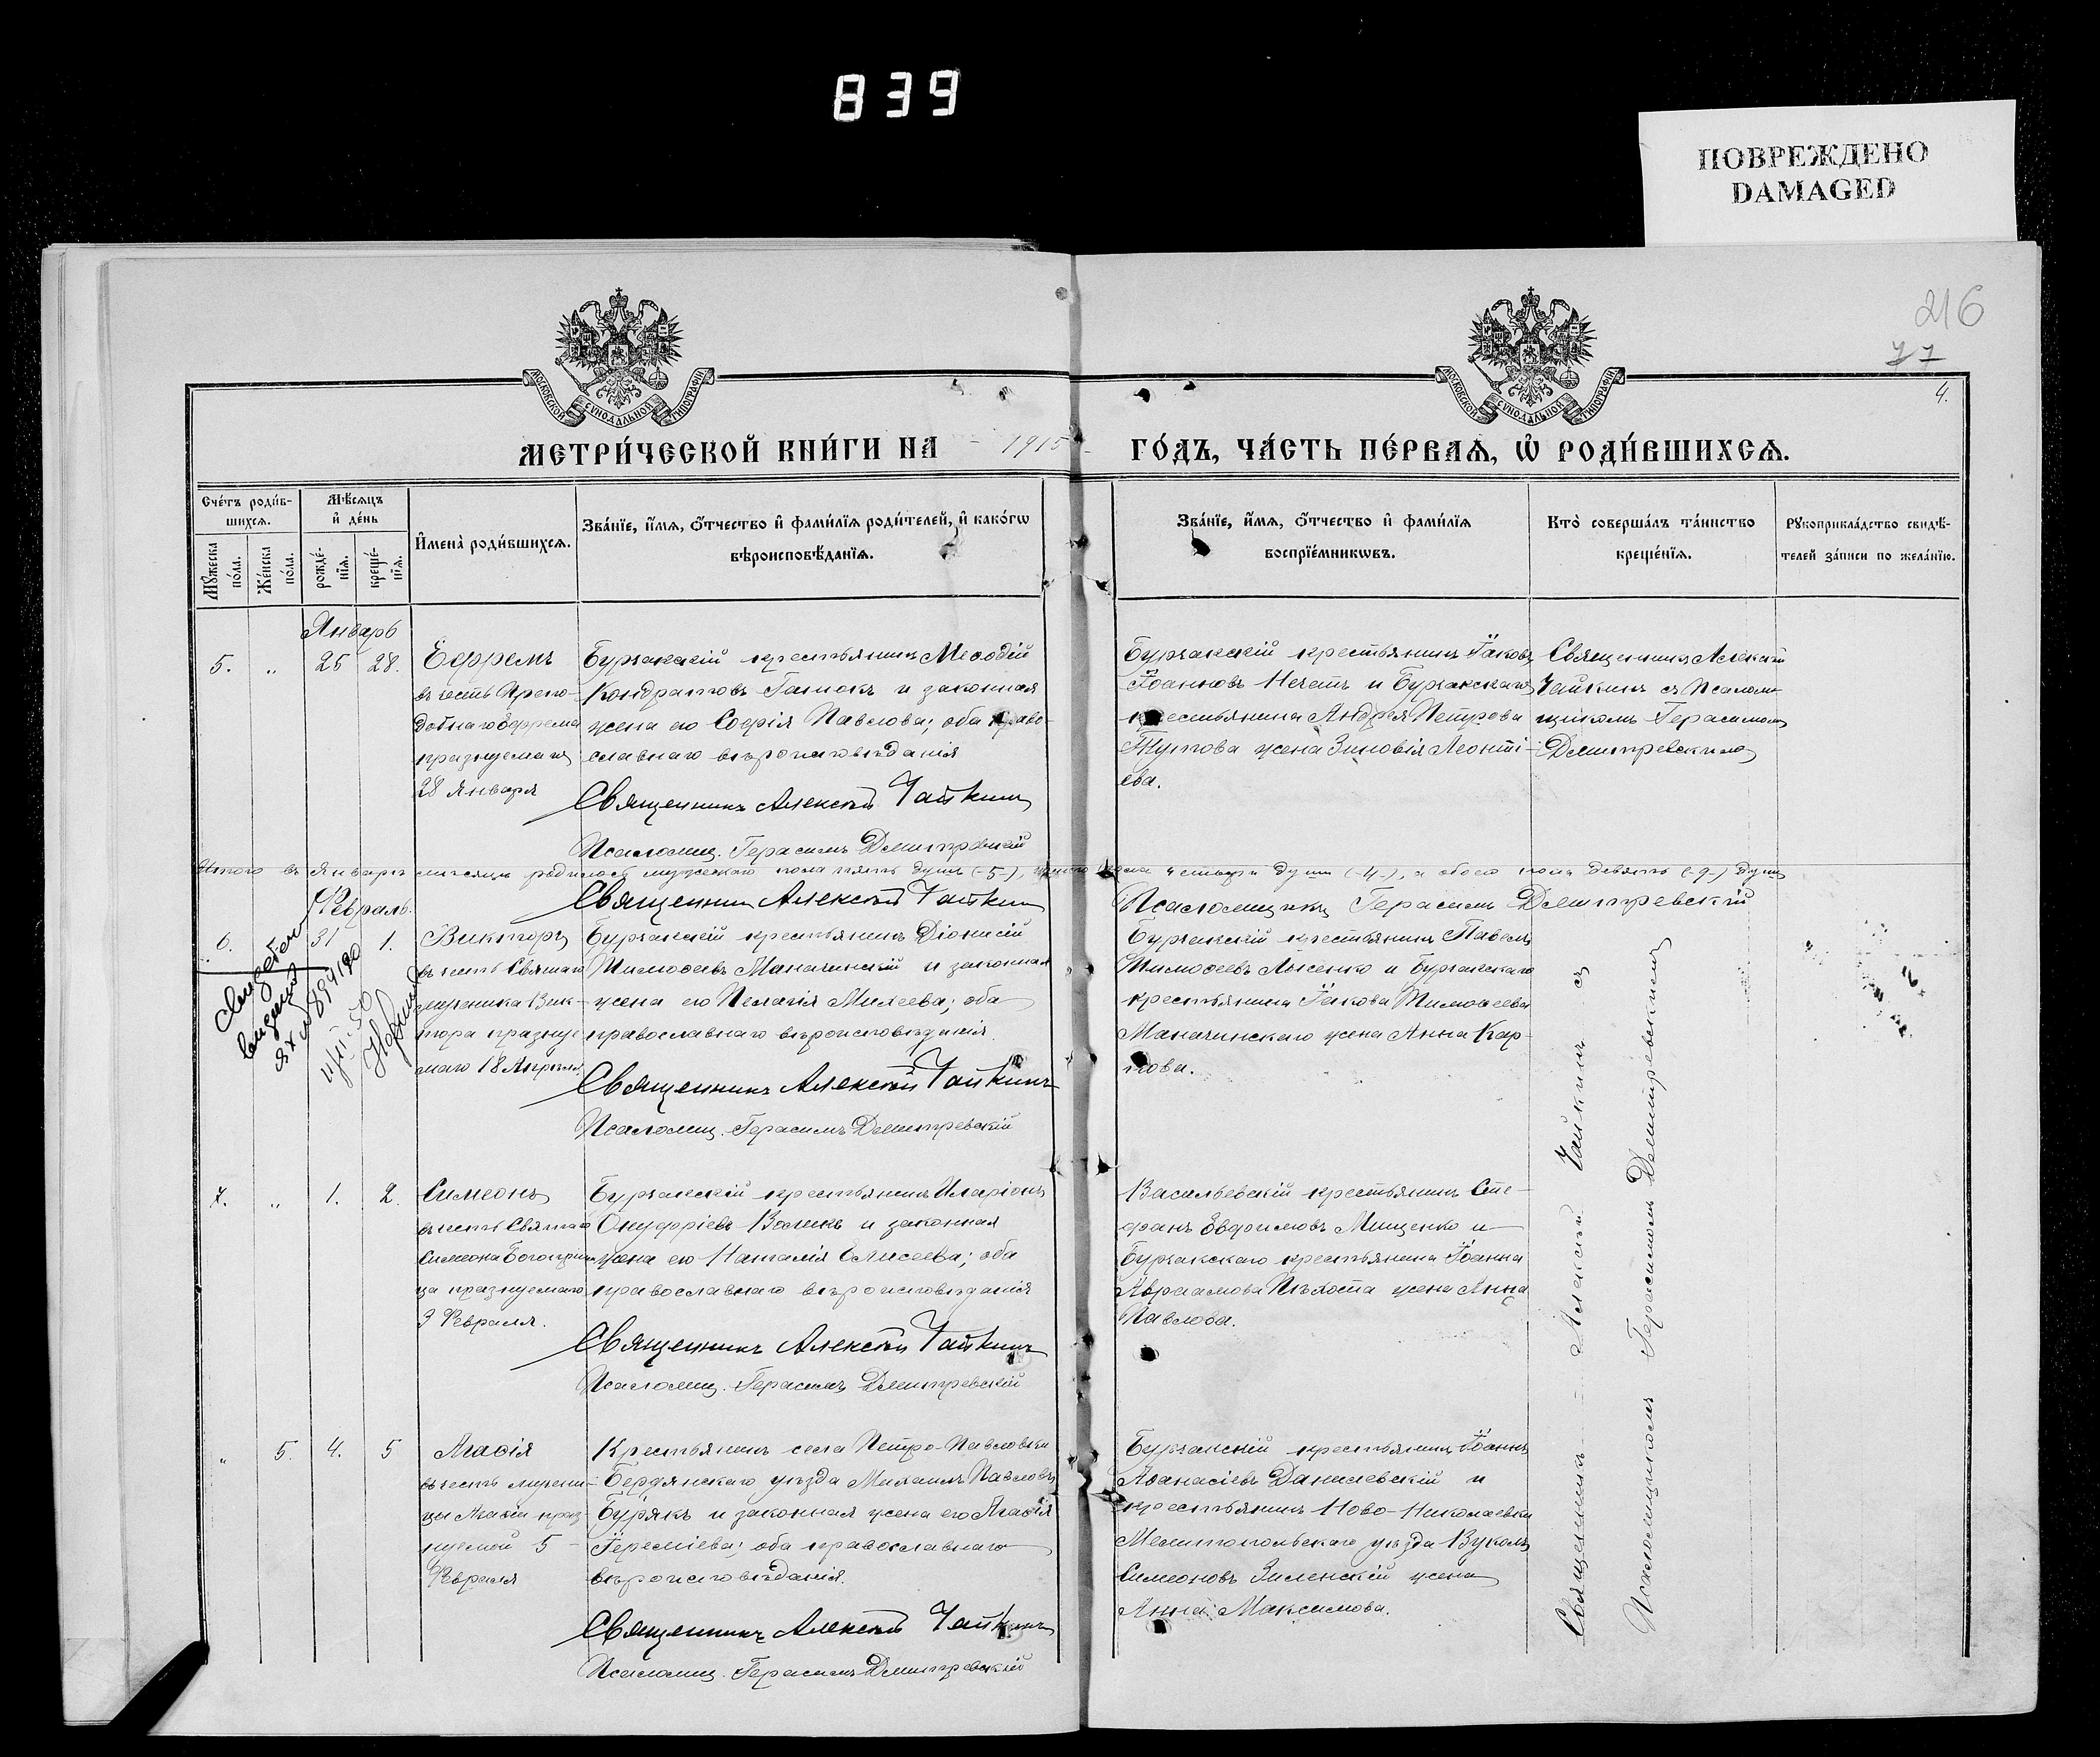 839
ПОВРЕЖДЕНО
DAMAGED
216
77
4.
МОСКОВСКОЙ СѴНОДАЛЬНОЙ ТИПОГРАФІИ
МОСКОВСКОЙ СѴНОДАЛЬНОЙ ТИПОГРАФІИ
МЕТРИ́ЧЕСКОЙ КНИ́ГИ НА 1915 ГО́ДЪ, ЧА́СТЬ ПЕ́РВАѦ, Ѡ҆ РОДИ́ВШИХСѦ.
Сче́тъ роди́в-
шихсѧ.
Мꙋ́жеска по́ла.
Же́нска по́ла.
Мѣ́сѧцъ
и҆ де́нь
рожде́-
нїѧ.
креще́-
нїѧ.
И҆мена̀ роди́вшихсѧ.
Зва́нїе, и҆́мѧ, ѻ҆́тчество и҆ фами́лїѧ роди́телей, и҆ како́гѡ
вѣроисповѣ́данїѧ.
Зва́нїе, и҆́мѧ, ѻ҆́тчество и҆ фами́лїѧ
воспрїе́мникѡвъ.
Кто̀ соверша́лъ та́инство
креще́нїѧ.
Рꙋкоприкла́дство свидѣ́-
телей за́писи по жела́нїю.
Январь
5. „ 25 28.
Ефремъ
въ честь Препо-
добнаго Ефрема
празнуемаго
28 Января
Бурчакскій крестьянинъ Меѳодій
Кондратовъ Гапюкъ и законная
жена его Софія Павлова; оба право-
славнаго вѣроисповѣданія
Священникъ Алексѣй Чайкинъ
Псаломщ. Герасимъ Дмитревскій
Бурчакскій крестьянинъ Іаковъ
Іоанновъ Нечетъ и Бурчакскаго
крестьянина Андрея Петрова
жена Зиновія Леонті-
ева.
Священникъ Алексѣй
Чайкинъ съ Псалом-
щикомъ Герасимомъ
Дмитревскимъ
Итого въ Январѣ мѣсяцѣ родилось мужескаго пола пять душъ (-5-), женскаго пола четыре души (-4-), а обоего пола девять (-9-) душъ
Священникъ Алексѣй Чайкинъ
Псаломщикъ Герасимъ Дмитревскій
Февраль.
6. 31 1.
Викторъ
въ честь Святаго
мученика Вик-
тора празнуе-
маго 18 Апрѣля.
Бурчакскій крестьянинъ Діонисій
Тимоѳеевъ Маначинскій и законная
жена его Пелагія Михеева; оба
православнаго вѣроисповѣданія.
Священникъ Алексѣй Чайкинъ
Псаломщ. Герасимъ Дмитревскій
Бурчакскій крестьянинъ Павелъ
Тимоѳеевъ Лысенко и Бурчакскаго
крестьянина Іакова Тимоѳеева
Маначинскаго жена Анна Кар-
пова.
7. „ 1. 2.
Симеонъ
въ честь Святаго
Симеона Богопріим-
ца празнуемаго
3 Февраля.
Бурчакскій крестьянинъ Иларіонъ
Онуфріевъ Воликъ и законная
жена его Наталія Елисеева; оба
православнаго вѣроисповѣданія
Священникъ Алексѣй Чайкинъ
Псаломщ. Герасимъ Дмитревскій
Васильевскій крестьянинъ Сте-
фанъ Евфимовъ Мищенко и
Бурчакскаго крестьянина Іоанна
Авраамова Пѣхота жена Анна
Павлова.
„ 5. 4. 5
Агаѳія
въ честь мучени-
цы Агаѳіи праз-
нуемой 5
Февраля
Крестьянинъ села Петро-Павловки
Бердянскаго уѣзда Михаилъ Павловъ
Бурякъ и законная жена его Агаѳія
Іереміева; оба православнаго
вѣроисповѣданія.
Священникъ Алексѣй Чайкинъ
Псаломщ. Герасимъ Дмитревскій
Бурчакскій крестьянинъ Іоаннъ
Аѳанасіевъ Данилевскій и
крестьянинъ Ново-Николаевки
Мелитопольскаго уѣзда Вуколъ
Симеоновъ Зиленскій жена
Анна Максимова.
Священникъ Алексѣй Чайкинъ съ
Псаломщикомъ Герасимомъ Дмитревскимъ